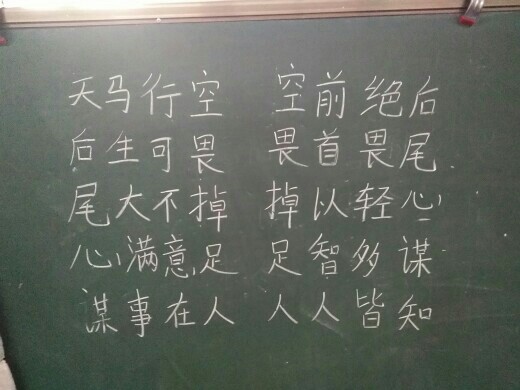 天马行空 空前绝后
后生可畏 畏首畏尾
尾大不掉 掉以轻心
心满意足 足智多谋
谋事在人 人人皆知